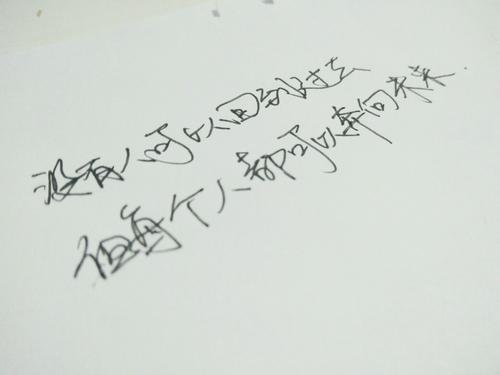 没有人可以回到过去
但每个人都可以奔向未来.